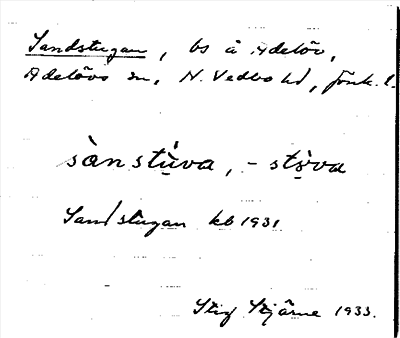 Sandstugan, bs å Adelöv,
Adelövs sn, N. Vedbo hd, Jönk. l.
sàn stu̇̀va, - stọ̀va
Sandstugan kb 1931
Stig Stjärne 1933.